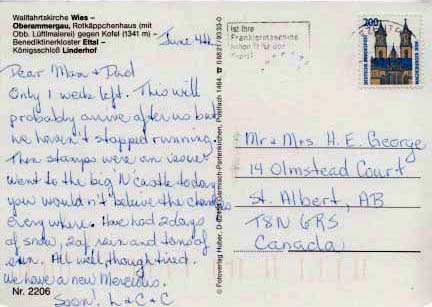 Wallfahrtskirche Wies –
Oberammergau, Rotkäppchenhaus (mit
Obb. Lüftlmalerei) gegen Kofel (1341 m) –
Benediktinerkloster Ettal –
Königsschloß Linderhof
June 4th
Dear Mum & Dad
Only 1 week left. This will
probably arrive after us but
we haven't stopped running.
Then stamps were an issue.
Went to the big 'N' castle today
you wouldn't believe the changes
everywhere. Have had 2 days
of snow, 2 of rain and tons of
sun. All well, though tired.
We have a new Mercedes.
Soon! L & C & C
Nr. 2206
© Fotoverlag Huber, Garmisch-Partenkirchen, Postfach 1484
Ist Ihre
Frankiermaschine
schon für
200
DEUTSCHE BUNDESPOST
Mr & Mrs H. E. George
14 Olmstead Court
St. Albert, AB
T8N GRS
Canada